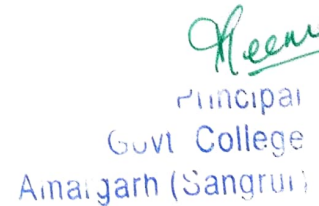 Meenu
Principal
Govt College
Amargarh (Sangrur)